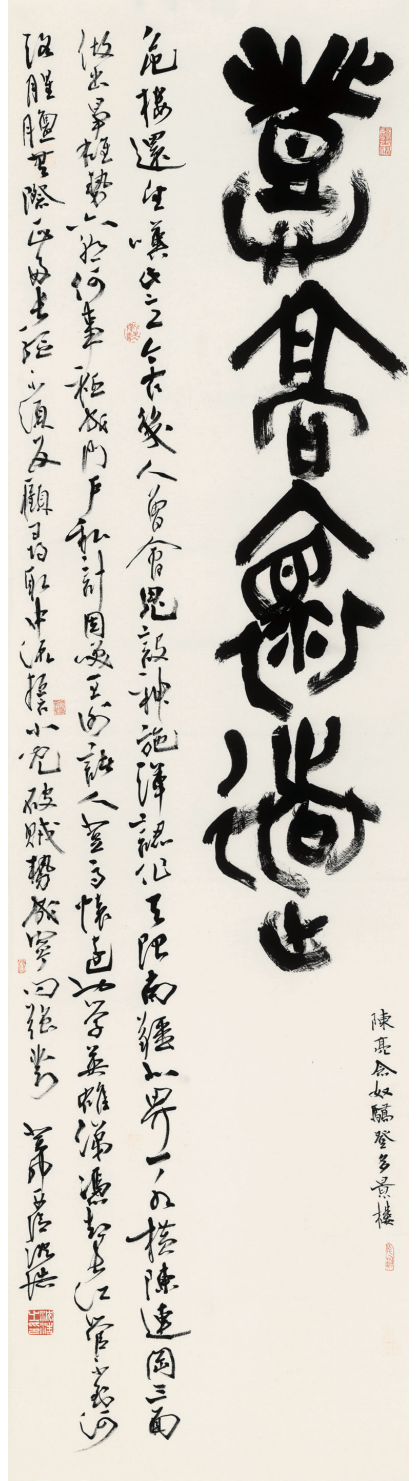 登高懷遠
陳亮念奴驕登多景樓
危樓還望嘆此意今古幾人曾會鬼設神施渾認作天限南疆北界一水橫陳連岡三面
做出爭雄勢六朝何事秪成門戶私計因笑王謝諸人登高懷遠也學英雄涕憑却長江管不到河
洛腥膻無際正好長驅不須反顧尋取中流誓小兒破賊勢成寧問強對